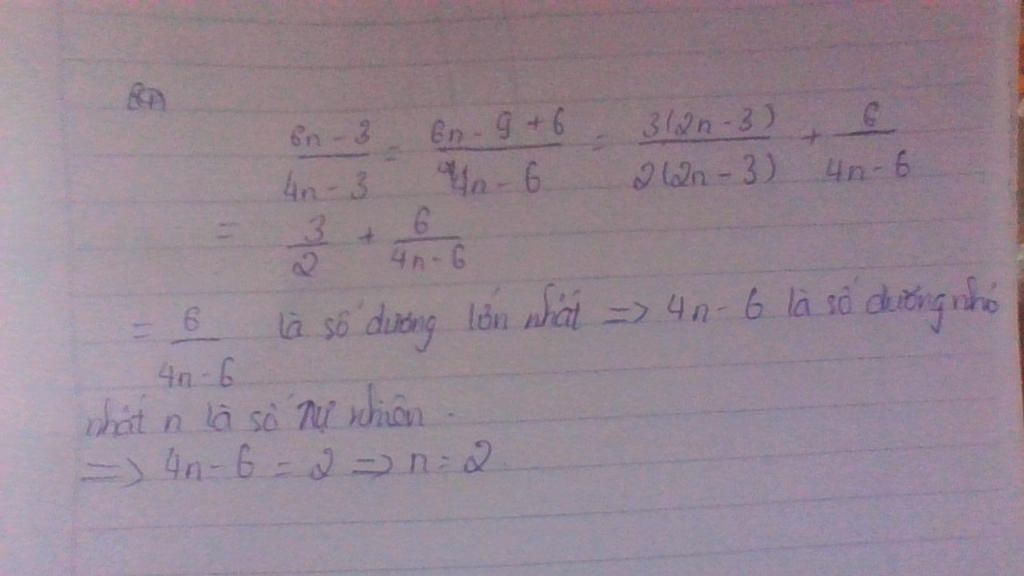 6n - 3 / 4n - 3 = 6n - 9 + 6 / 4n - 6 = 3(2n - 3) / 2(2n - 3) + 6 / 4n - 6
= 3 / 2 + 6 / 4n - 6
= 6 / 4n - 6 là số dương lớn nhất => 4n - 6 là số dương nhỏ
nhất n là số Tự nhiên.
=> 4n - 6 = 2 => n = 2